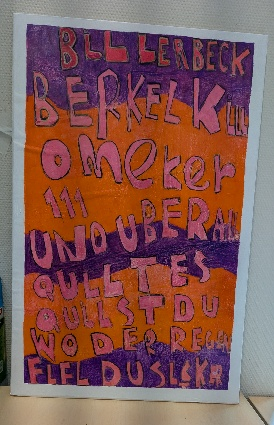 BLLLERBECK
BERKELK LLL
OMEker
111
UND UBERALL
QULLTES
QULLST DU
WO DER REGEN
FLEL DU SLCKR